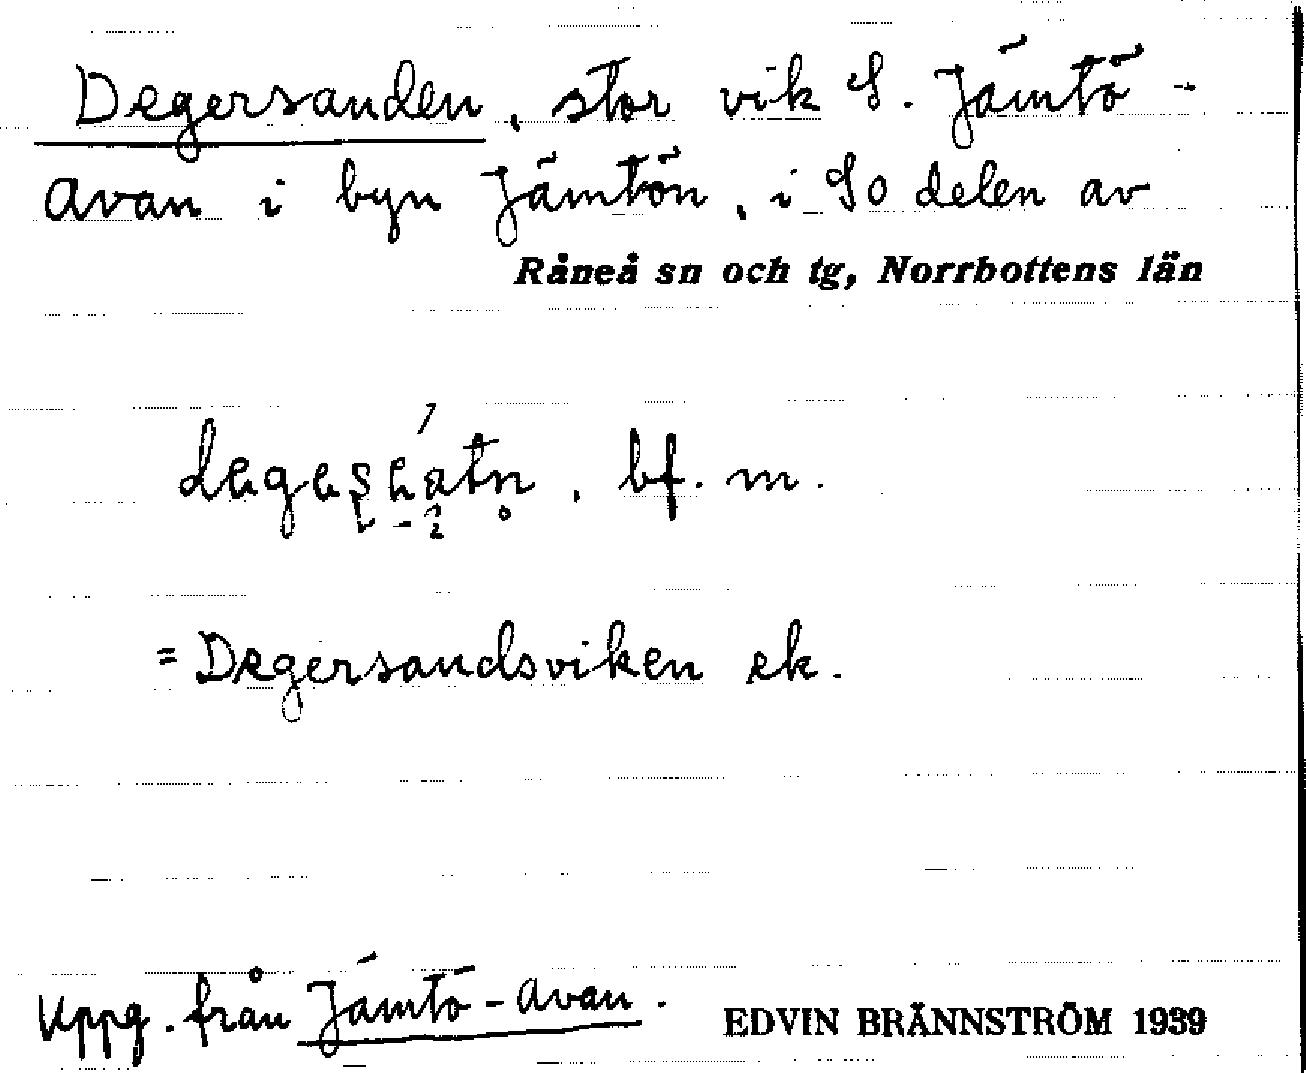 Degersanden, stor vik S. Jämtö-
avan i byn Jämtön, i So delen av
Råneå sn och tg, Norrbottens län
bf. m.
= Degersandsviken ek.
Uppg. från Jämtö-avan.
EDVIN BRÄNNSTRÖM 1939